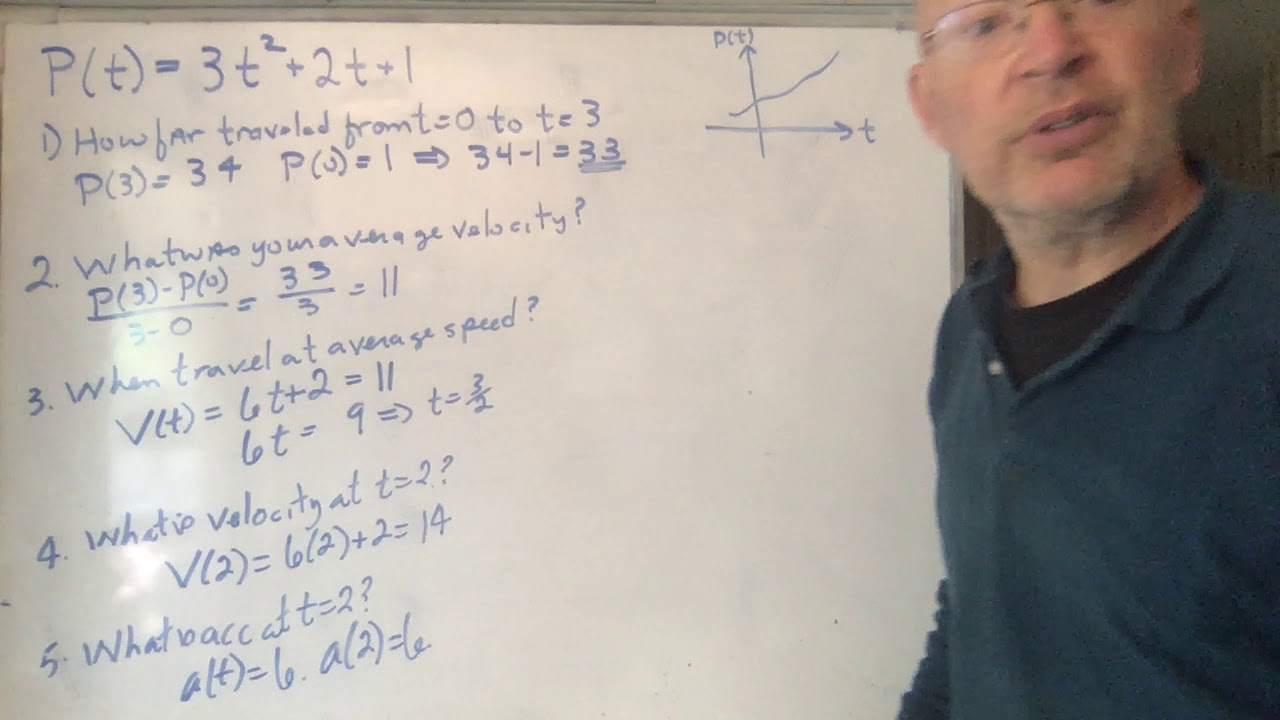 P(t) = 3t² + 2t + 1
1) How far traveled from t=0 to t=3
P(3) = 34 P(0) = 1 ⇒ 34-1 = 33
2. What was your average velocity?
P(3) - P(0) / 3-0 = 33/3 = 11
3. When travel at average speed?
V(t) = 6t+2 = 11
6t = 9 ⇒ t = 3/2
4. What is velocity at t=2?
V(2) = 6(2)+2 = 14
5. What is acc at t=2?
a(t) = 6. a(2) = 6
P(t)
t